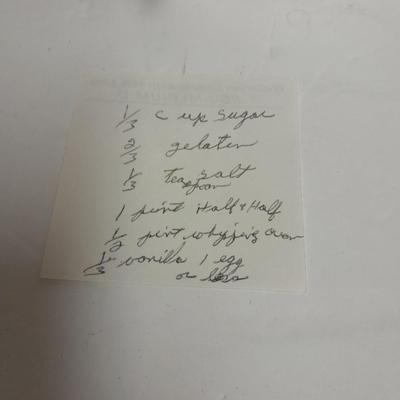 1/3 cup sugar
2/3 gelaten
1/3 tea spoon salt
1 pint Half & Half
1/2 pint whyping
1/3 vanilla 1 egg
or less